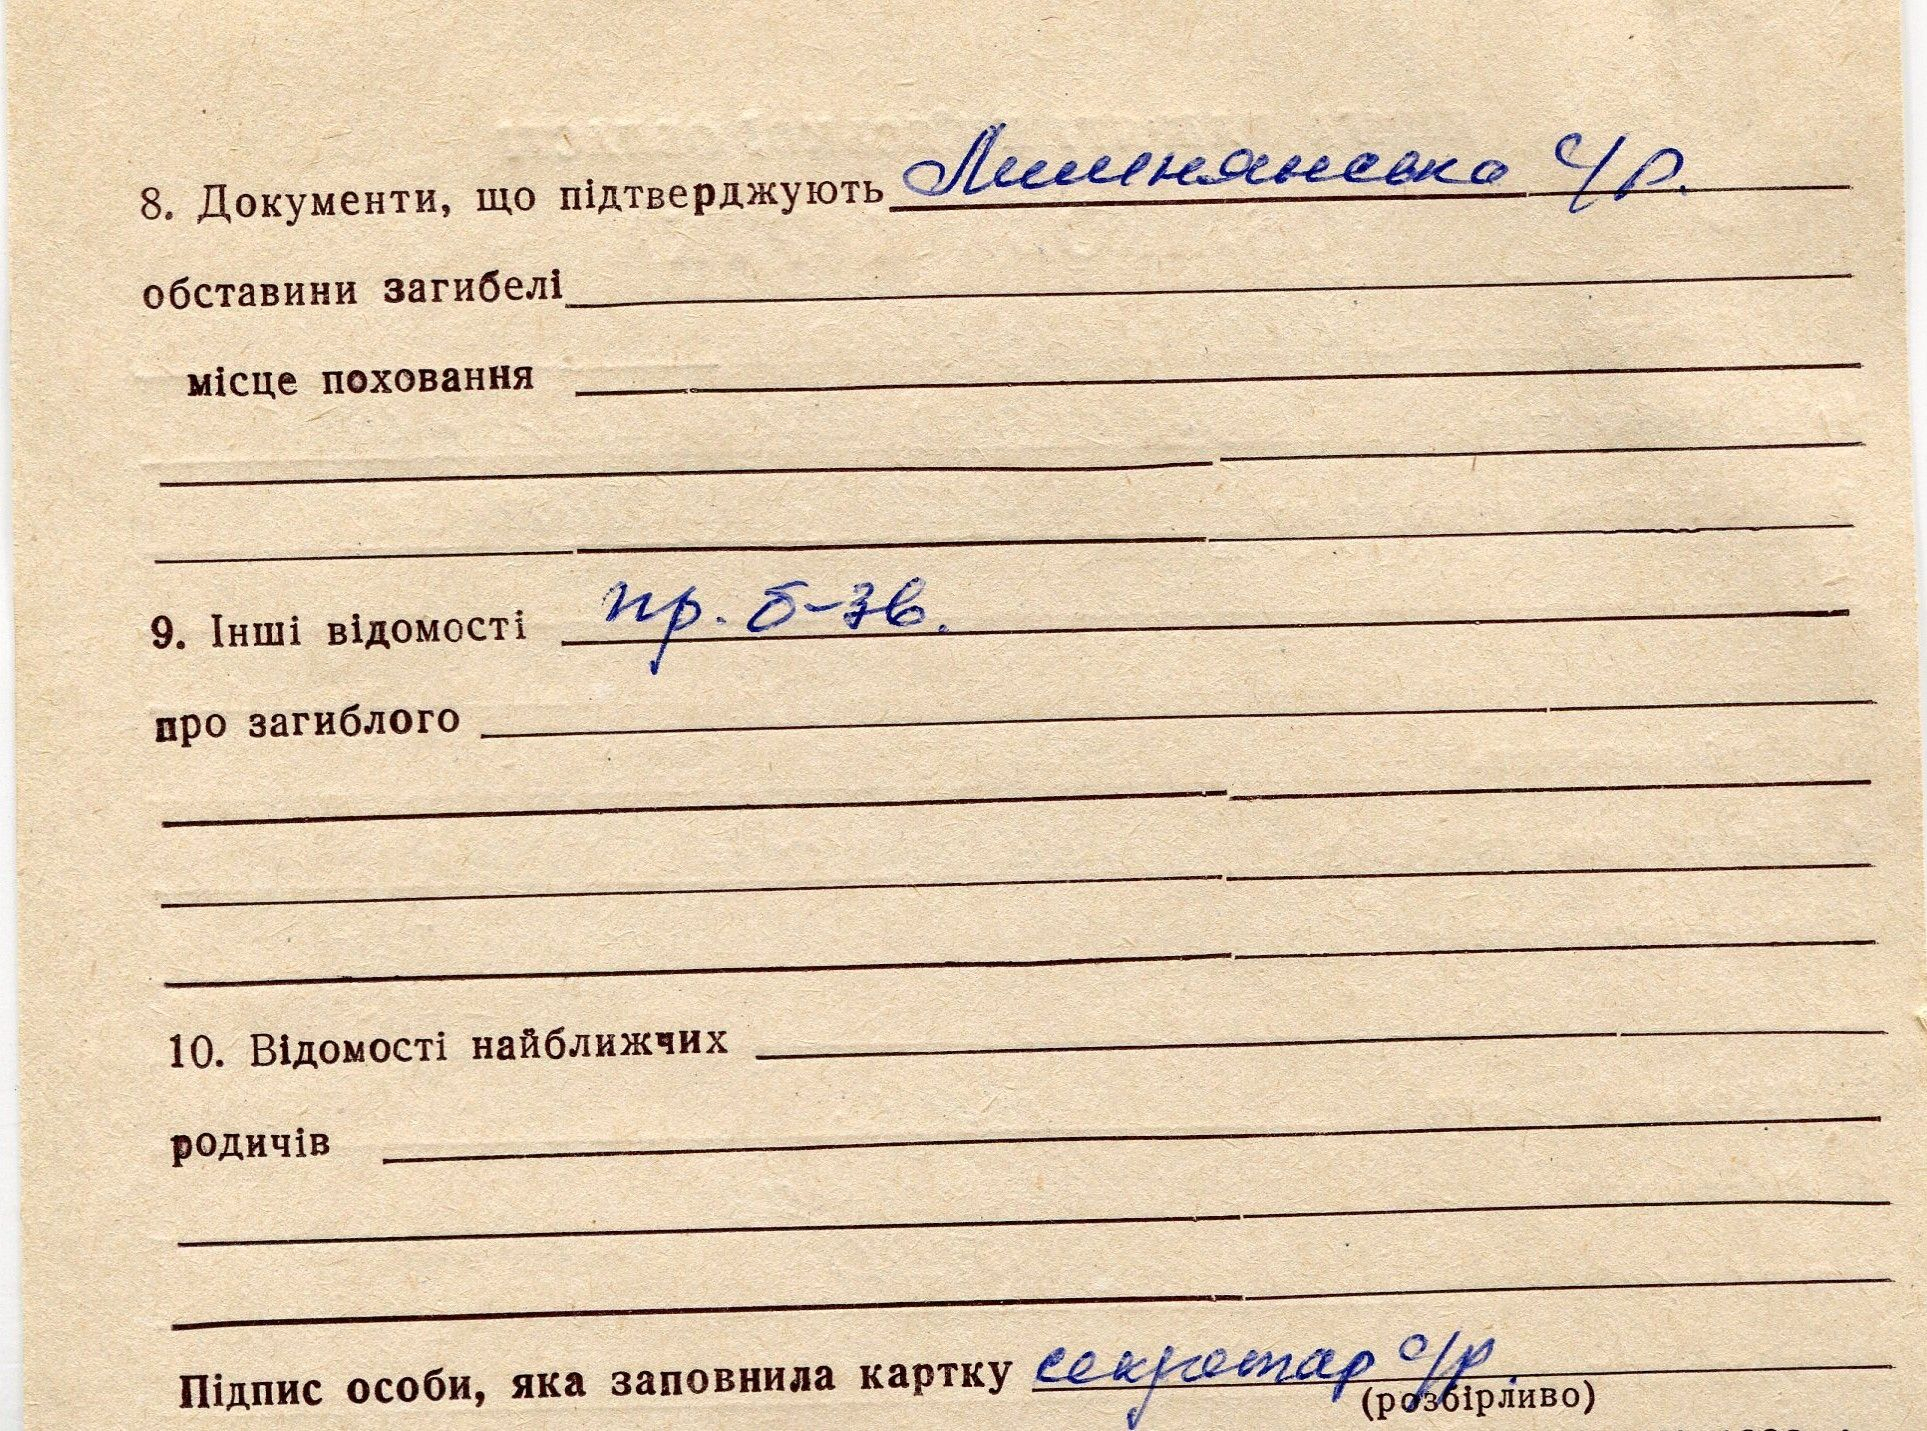 8. Документи, що підтверджують Липнянська с/р.
обставини загибелі
місце поховання
9. Інші відомості пр. б-зв.
про загиблого
10. Відомості найближчих
родичів
Підпис особи, яка заповнила картку секретар с/р
(розбірливо)